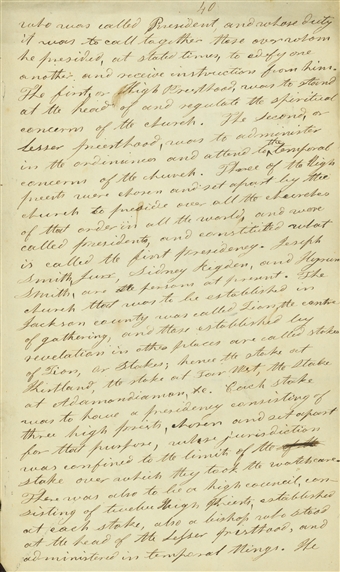 40
who was called President, and whose duty
it was to call together those over whom
he presided, at stated times, to edify one
another, and receive instruction from him.
The first, or High Priesthood, was to stand
at the head of and regulate the spiritical
concerns of the church. The second, or
Lesser priesthood, was to administer
in the ordinances and attend to the temporal
concerns of the church. Three of the high
priests were chosen and set apart by the
church to preside over all the churches
of that order in all the world, and were
called presidents, and constituted what
is called the first presidency. Joseph
Smith, Sidney Rigdon, and Hyrum
Smith, are the persons at present. The
church that was to be established in
Jackson county was called Zion, the centre
of gathering, and those established by
revelation in other places are called stakes
of Zion, or Stakes; hence the stake at
Kirtland, the stake at Far West, the Stake
at Adamondiaman, &c. Each stake
was to have a presidency consisting of
three high priests, chosen and set apart
for that purpose, whose jurisdiction
was confined to the limits of the
stake over which they took the watchcare.
There was also to be a high council, con-
sisting of twelve High Priests, established
at each stake, also a bishop who stood
at the head of the Lesser Priesthood, and
administered in temporal things. He